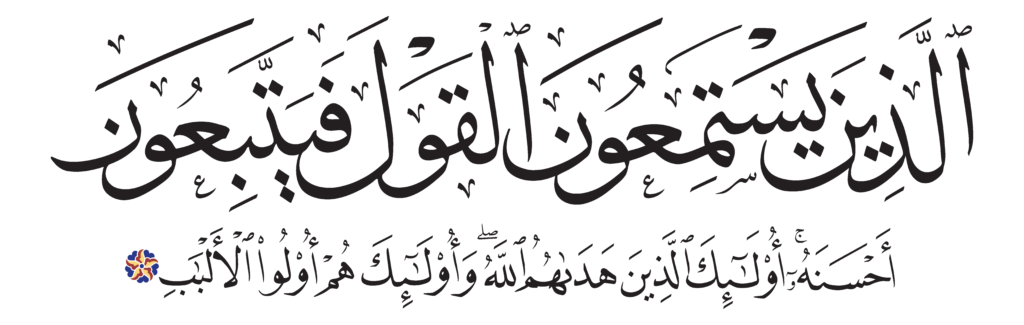 ٱلَّذِينَ يَسْتَمِعُونَ ٱلْقَوْلَ فَيَتَّبِعُونَ
أَحْسَنَهُۥٓ ۚ أُو۟لَـٰٓئِكَ ٱلَّذِينَ هَدَىٰهُمُ ٱللَّهُ ۖ وَأُو۟لَـٰٓئِكَ هُمْ أُو۟لُوا۟ ٱلْأَلْبَـٰبِ